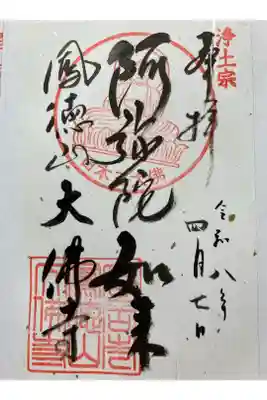 浄土宗
奉拝
令和八年
四月七日
阿弥陀如来
鳳徳山大佛寺